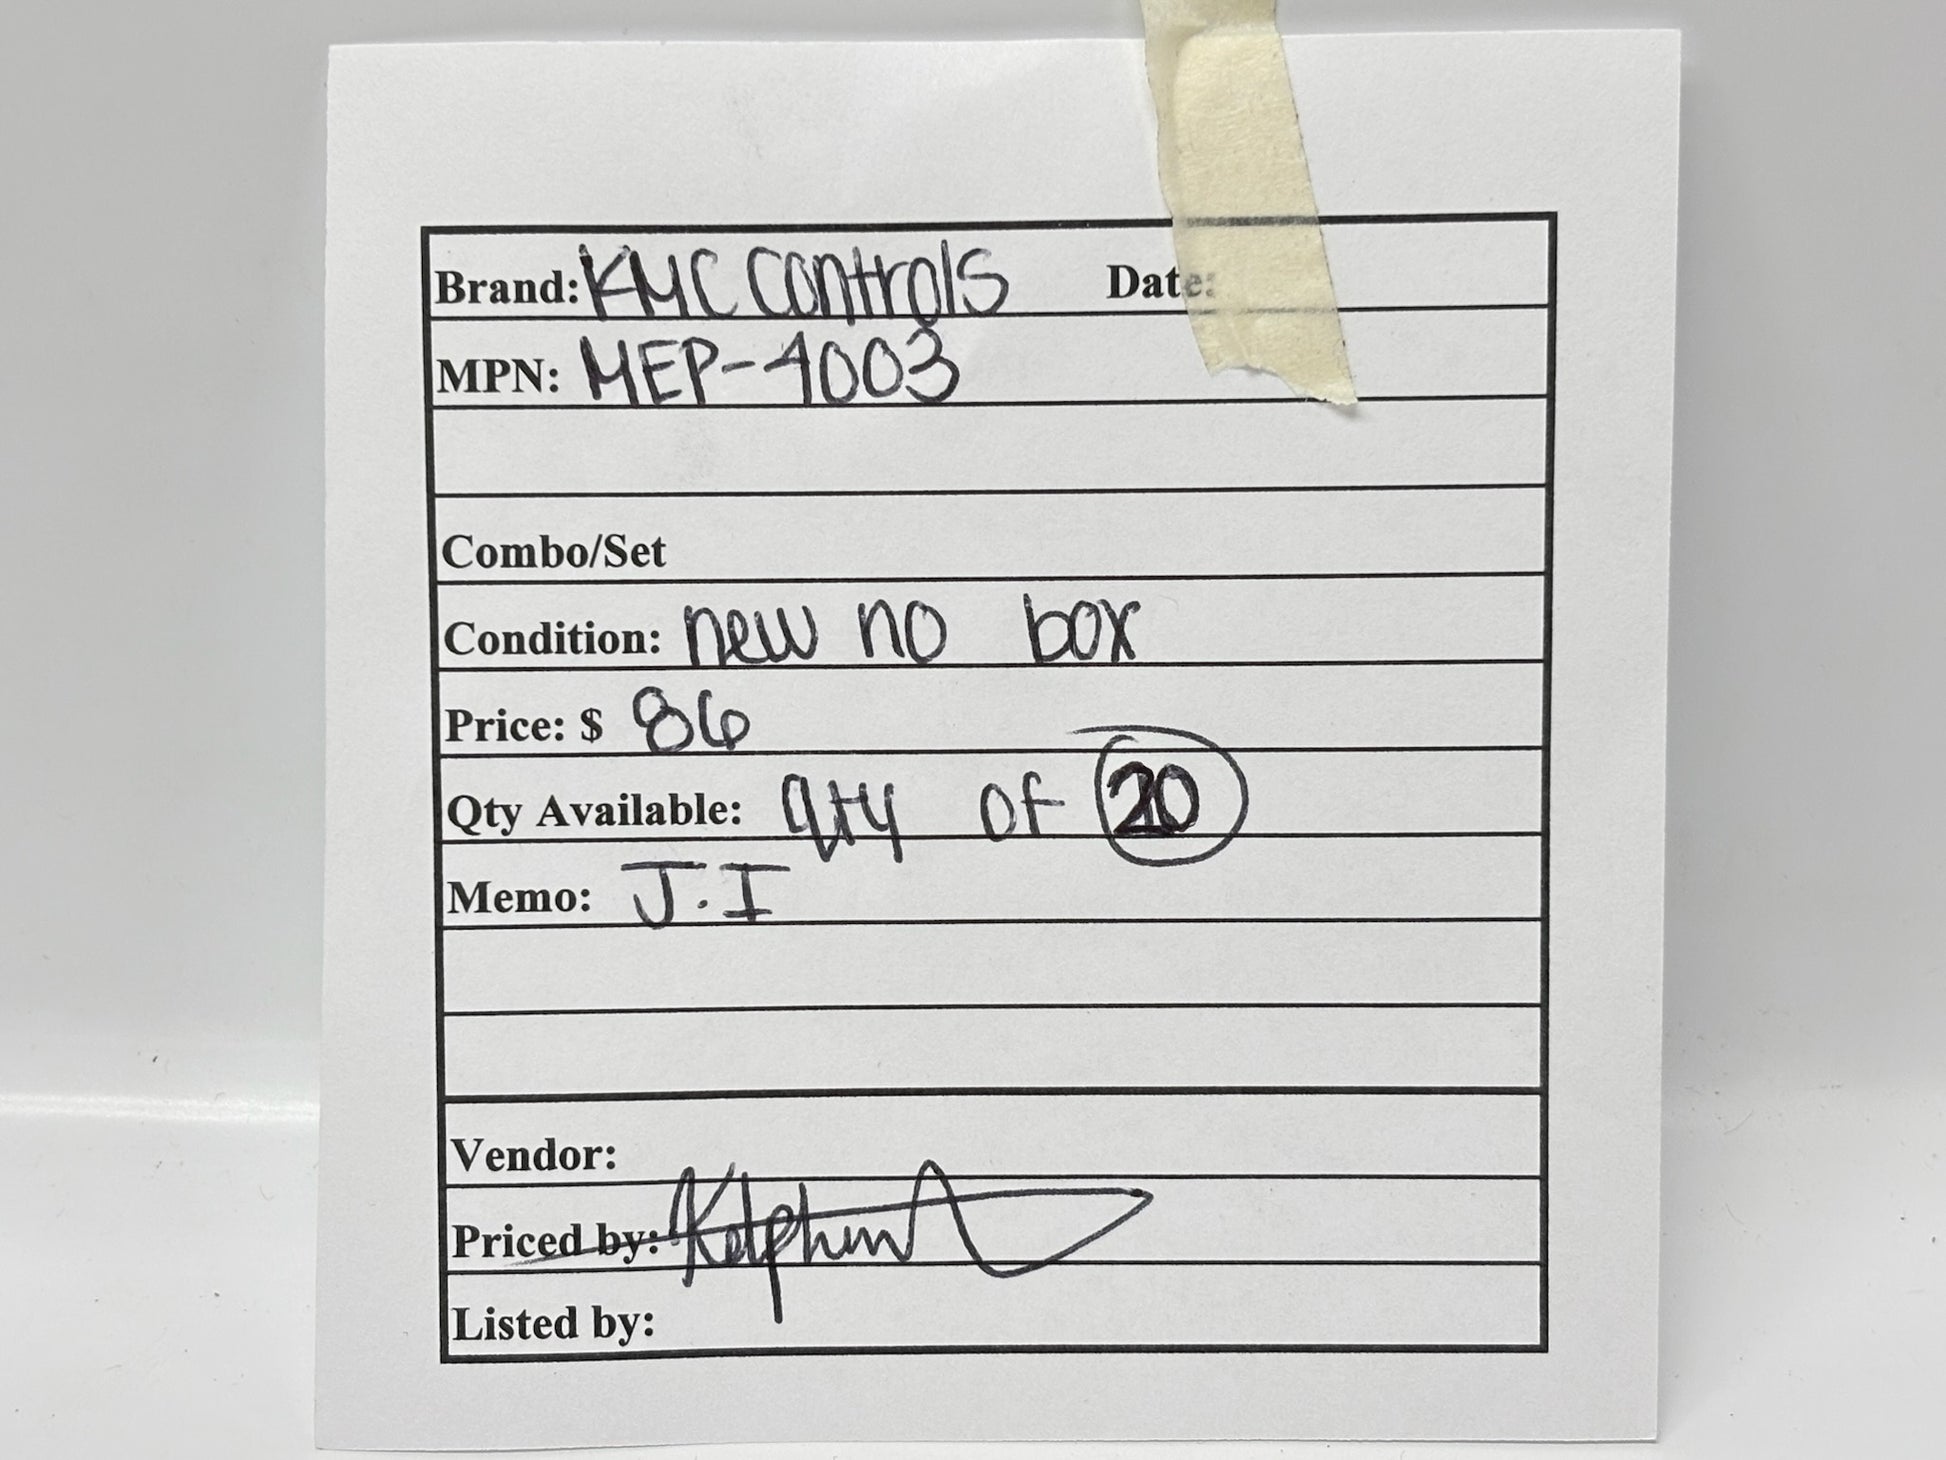 Brand: KMC Controls Date:
MPN: MEP-4003
Combo/Set
Condition: new no box
Price: $ 86
Qty Available: qty of 20
Memo: J.I
Vendor:
Priced by:
Listed by: